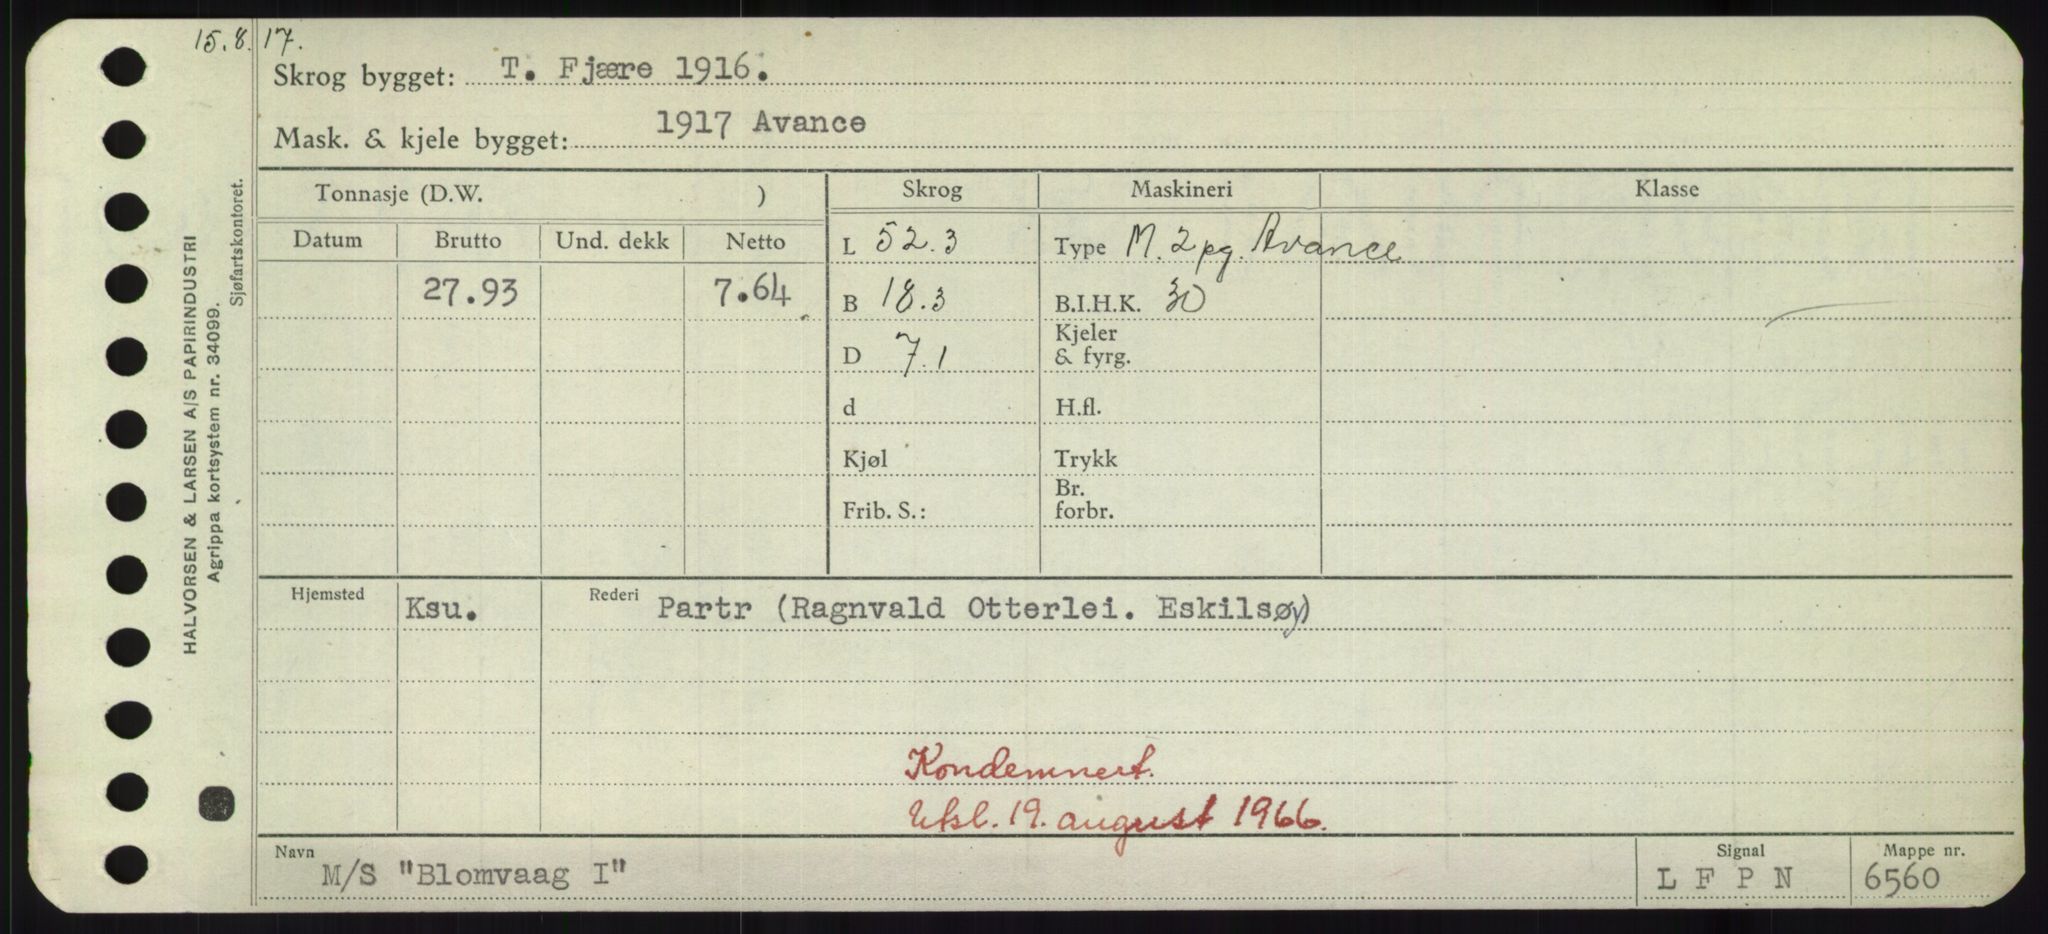 15.8.17.
Skrog bygget: T. Fjære 1916.
Mask. & kjele bygget: 1917 Avance
Tonnasje (D.W. ) Skrog Maskineri Klasse
Datum Brutto Und. dekk Netto L 52.3 Type M. 2 pg. Avance
27.93 7.64 B 18.3 B.I.H.K. 30
D 7.1 Kjeler
& fyrg.
d H.fl.
Kjøl Trykk
Frib. S.: Br.
forbr.
Hjemsted Ksu. Rederi Partr (Ragnvald Otterlei. Eskilsøy)
Kondemnert.
Utsl. 19. august 1966.
Navn M/S "Blomvaag I" Signal L F P N Mappe nr. 6560
HALVORSEN & LARSEN A/S PAPIRINDUSTRI
Agrippa kortsystem nr. 34099.
Sjøfartskontoret.